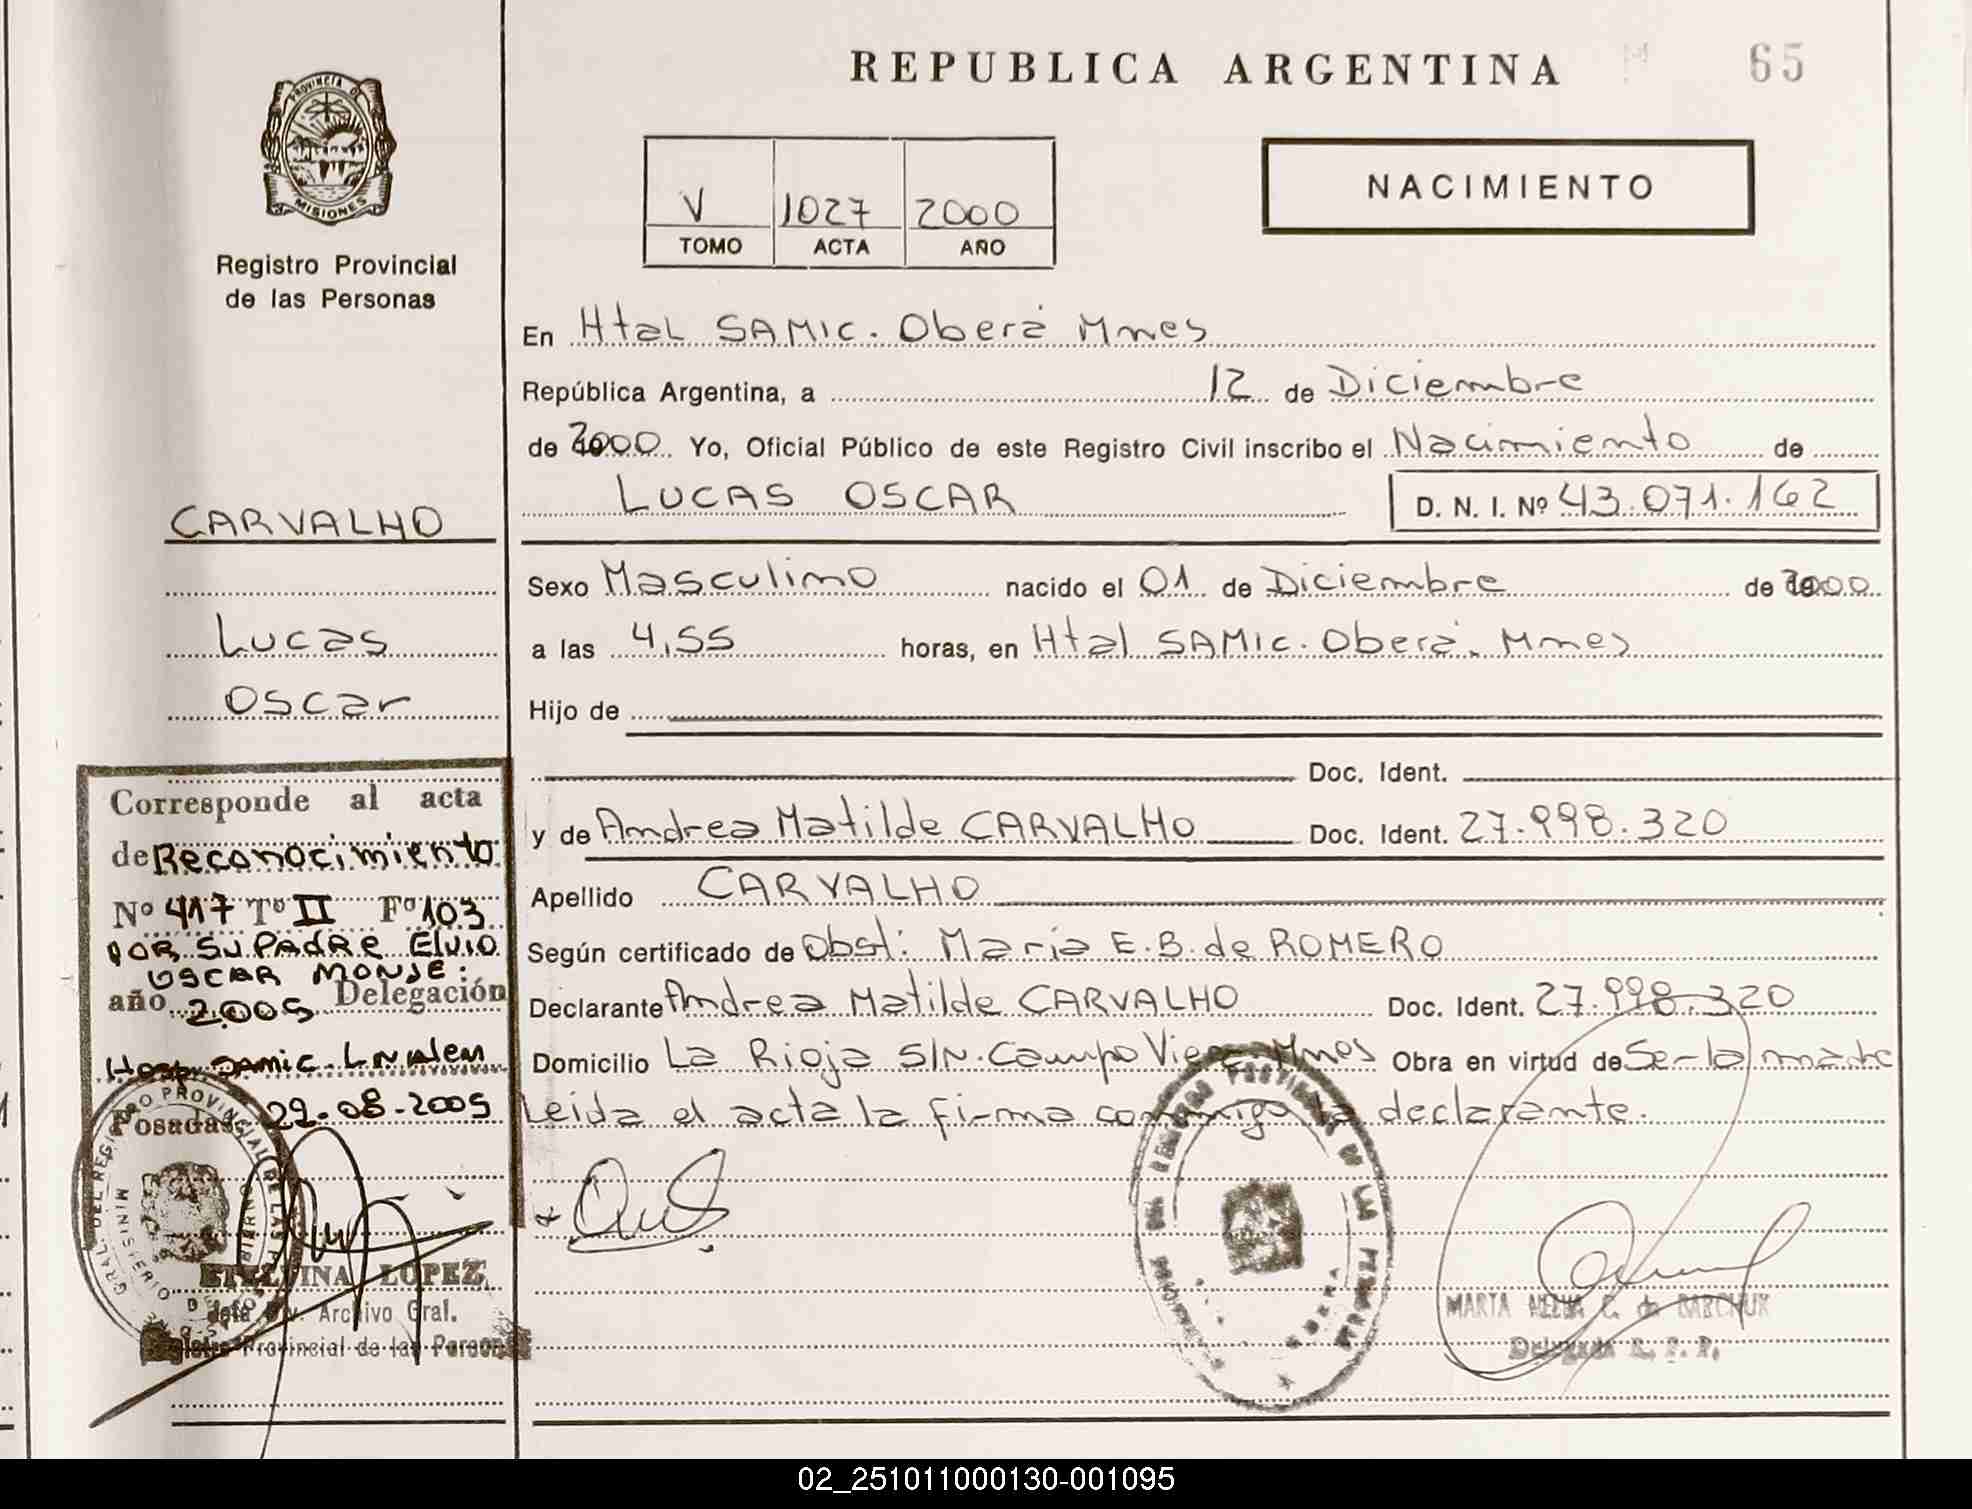 REPUBLICA ARGENTINA
65
PROVINCIA DE
MISIONES
Registro Provincial
de las Personas
V 1027 2000
TOMO ACTA AÑO
NACIMIENTO
En Htal SAMIC. Oberá Mnes
República Argentina, a 12 de Diciembre
de 2000 Yo, Oficial Público de este Registro Civil inscribo el Nacimiento de
LUCAS OSCAR D. N. I. Nº 43.071.162
CARVALHO
Lucas
Oscar
Sexo Masculino nacido el 01 de Diciembre de 2000
a las 4,55 horas, en Htal SAMIC. Oberá. Mnes
Hijo de
Doc. Ident.
y de Andrea Matilde CARVALHO Doc. Ident. 27.998.320
Apellido CARVALHO
Según certificado de Obst: Maria E.B. de ROMERO
Declarante Andrea Matilde CARVALHO Doc. Ident. 27.998.320
Domicilio La Rioja S/N. Campo Viera Mnes Obra en virtud de Ser la madre
Leida el acta la firma conmigo la declarante.
Corresponde al acta
de Reconocimiento
Nº 417 Tº II Fº 103
POR SU PADRE ELVIO
OSCAR MONJE.
año 2005 Delegación
Hosp. Samic. L N Alem
Posadas, 29-08-2005
ETELVINA LOPEZ
Jefa Div. Archivo Gral.
Registro Provincial de las Personas
MARTA C. de
Delegada R. P. P.
02_251011000130-001095